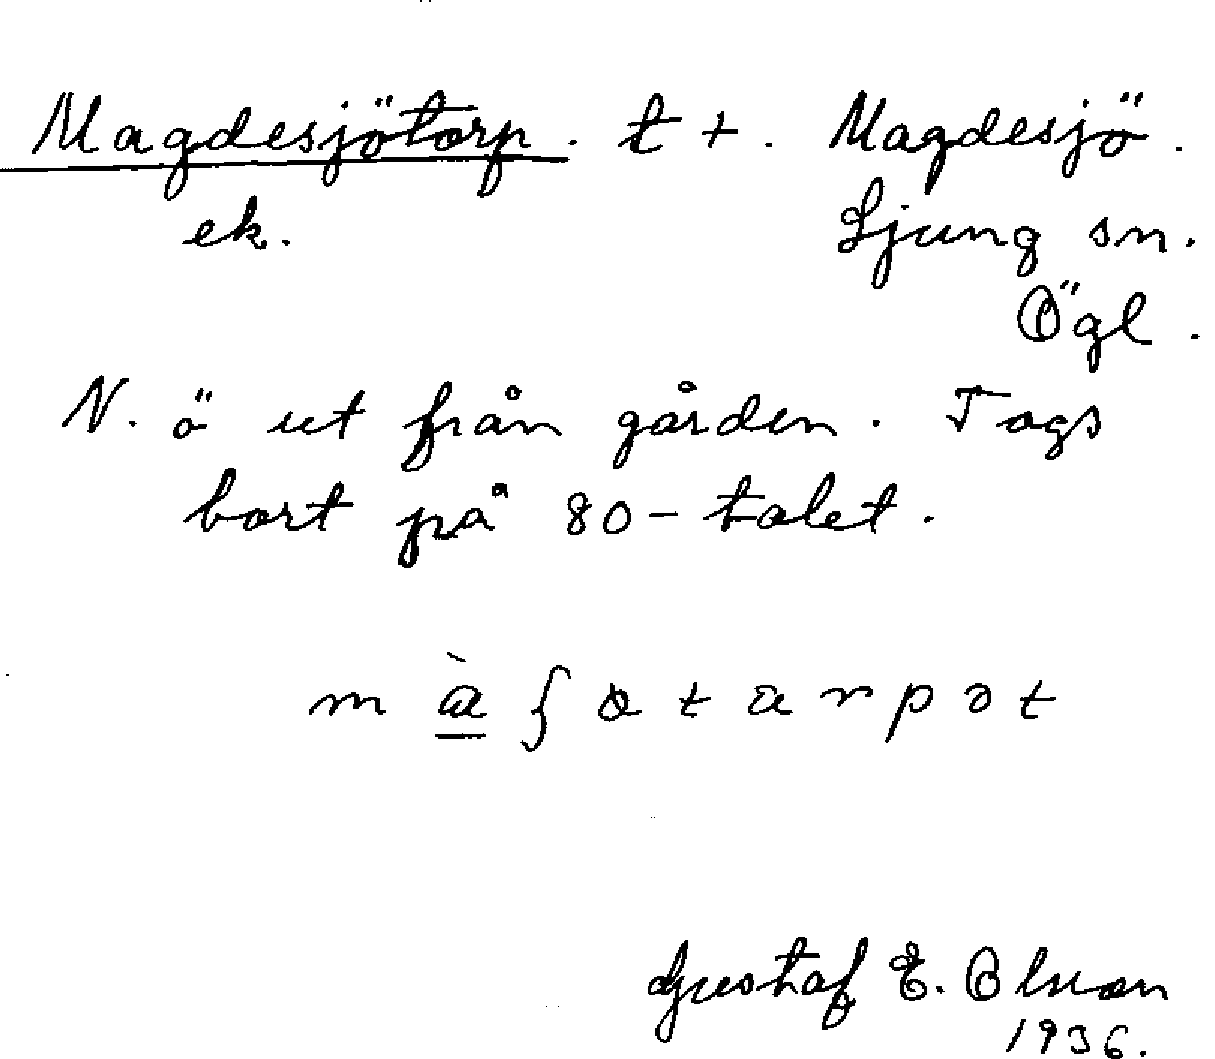 Magdesjötorp. t +. Magdesjö.
ek. Ljung sn.
Ögl.
N. ö ut från gården. Togs
bort på 80-talet.
Gustaf E. Olson
1936.